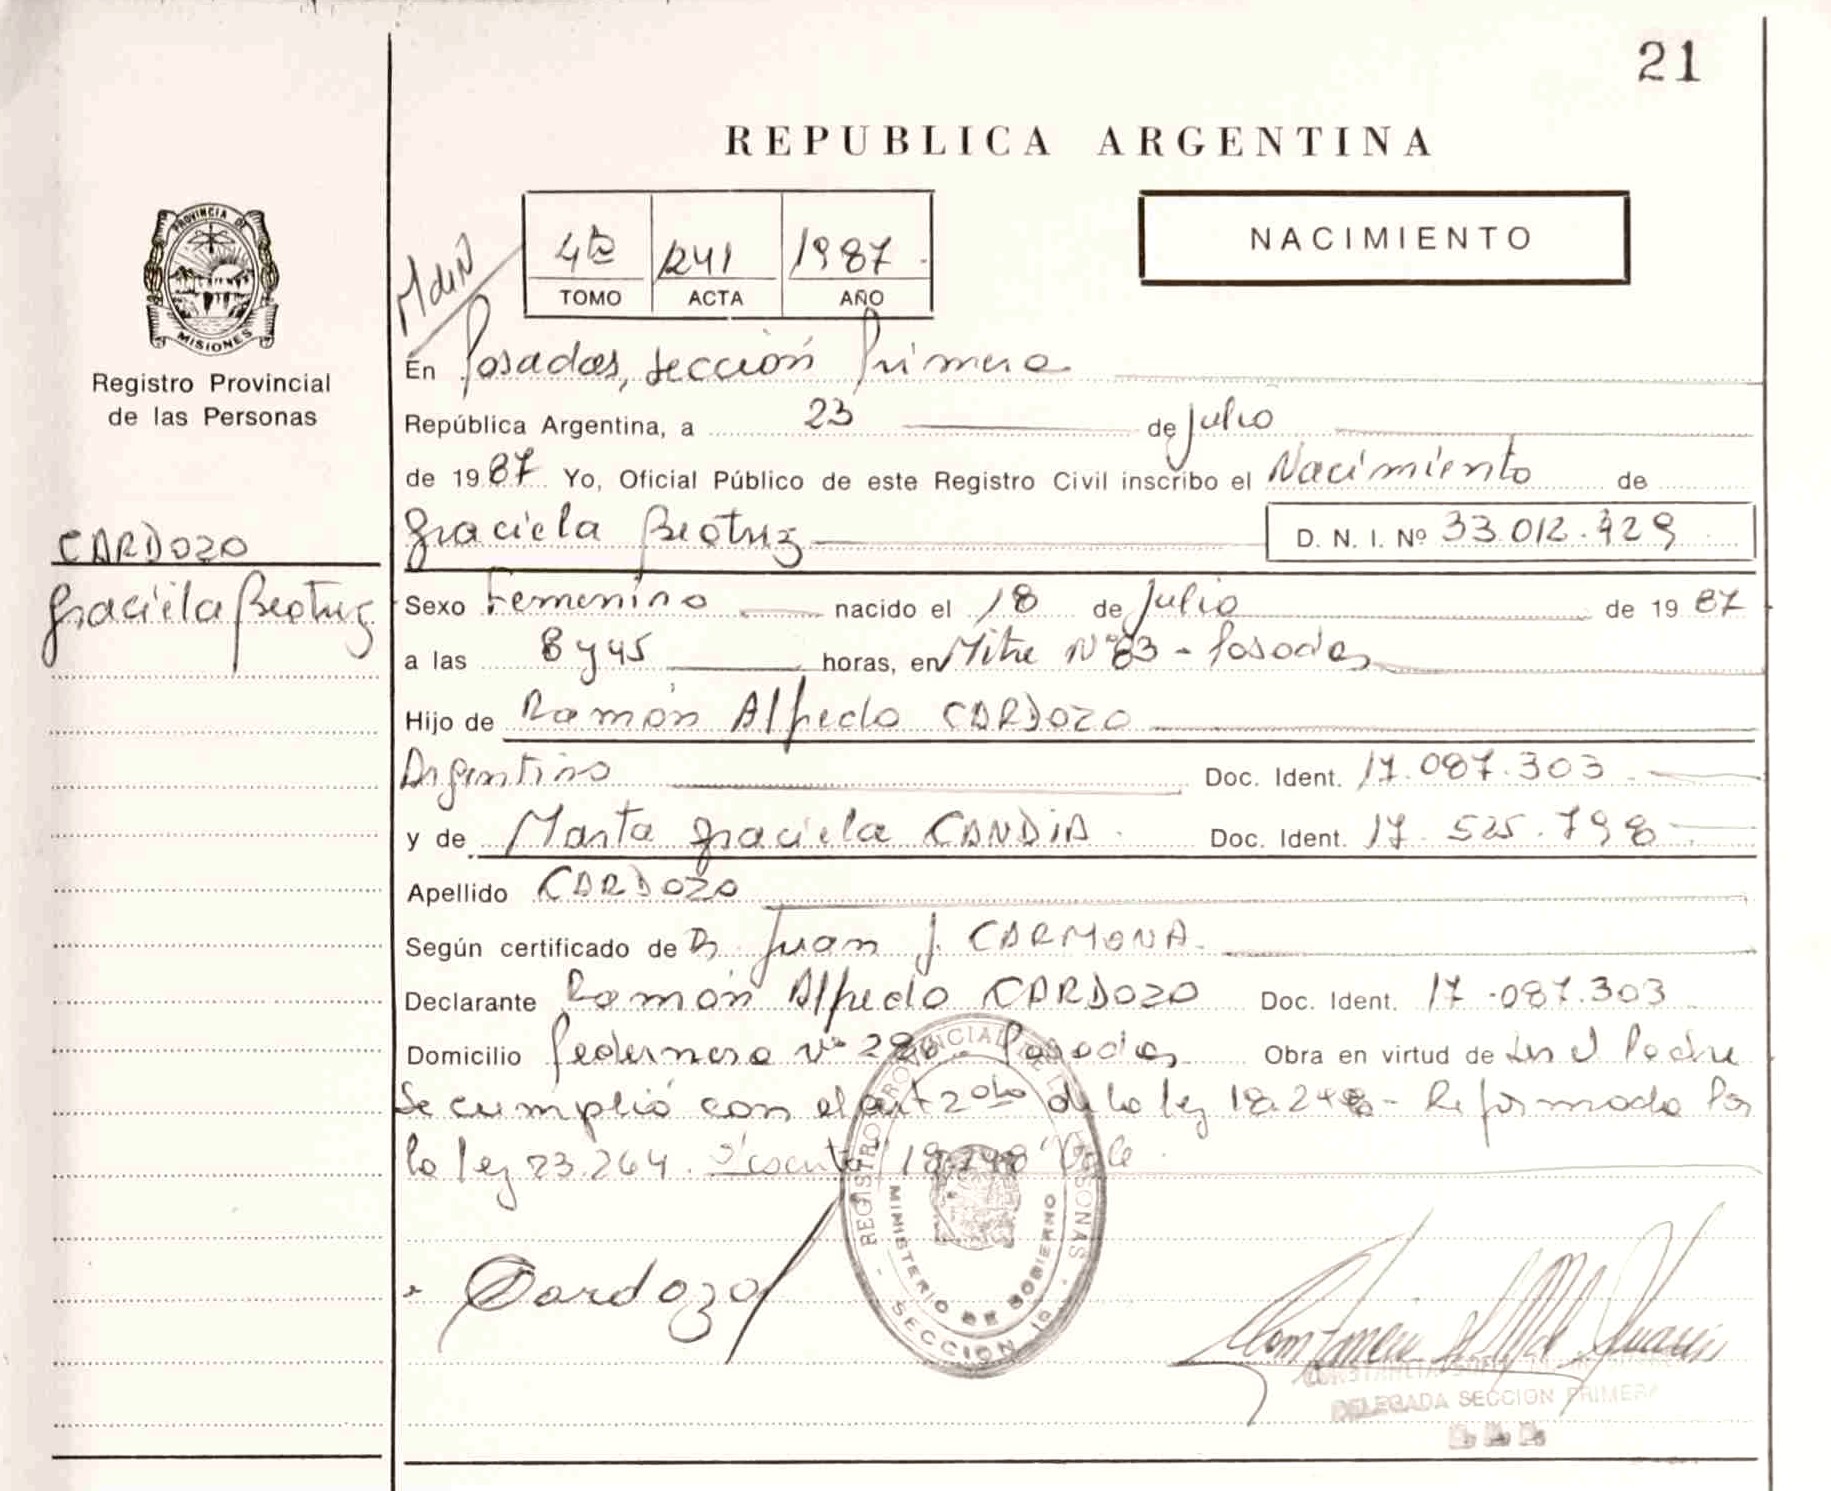 21
REPUBLICA ARGENTINA
4to 1241 1987
TOMO ACTA AÑO
NACIMIENTO
PROVINCIA DE
MISIONES
Registro Provincial
de las Personas
CARDOZO
Graciela Beatriz
En Posadas, Sección Primera
República Argentina, a 23 de Julio
de 1987 Yo, Oficial Público de este Registro Civil inscribo el Nacimiento de
Graciela Beatriz D. N. I. Nº 33.012.429
Sexo Femenino nacido el 18 de Julio de 1987
a las 8 y 45 horas, en Mitre Nº 83 - Posadas
Hijo de Ramón Alfredo CARDOZO
Argentino Doc. Ident. 17.087.303
y de Marta Graciela CANDIA Doc. Ident. 17.525.798
Apellido CARDOZO
Según certificado de Dr. Juan J. CARMONA
Declarante Ramón Alfredo CARDOZO Doc. Ident. 17.087.303
Domicilio Pedernera Nº Posadas Obra en virtud de Ser el Padre
Se cumplió con el art 2do de la ley 18.248 - Reformada Por
la ley 23.264. 18.248 Vale
Cardozo
REGISTRO PROVINCIAL DE LAS PERSONAS
MINISTERIO DE GOBIERNO
SECCION 1º
DELEGADA SECCION PRIMERA